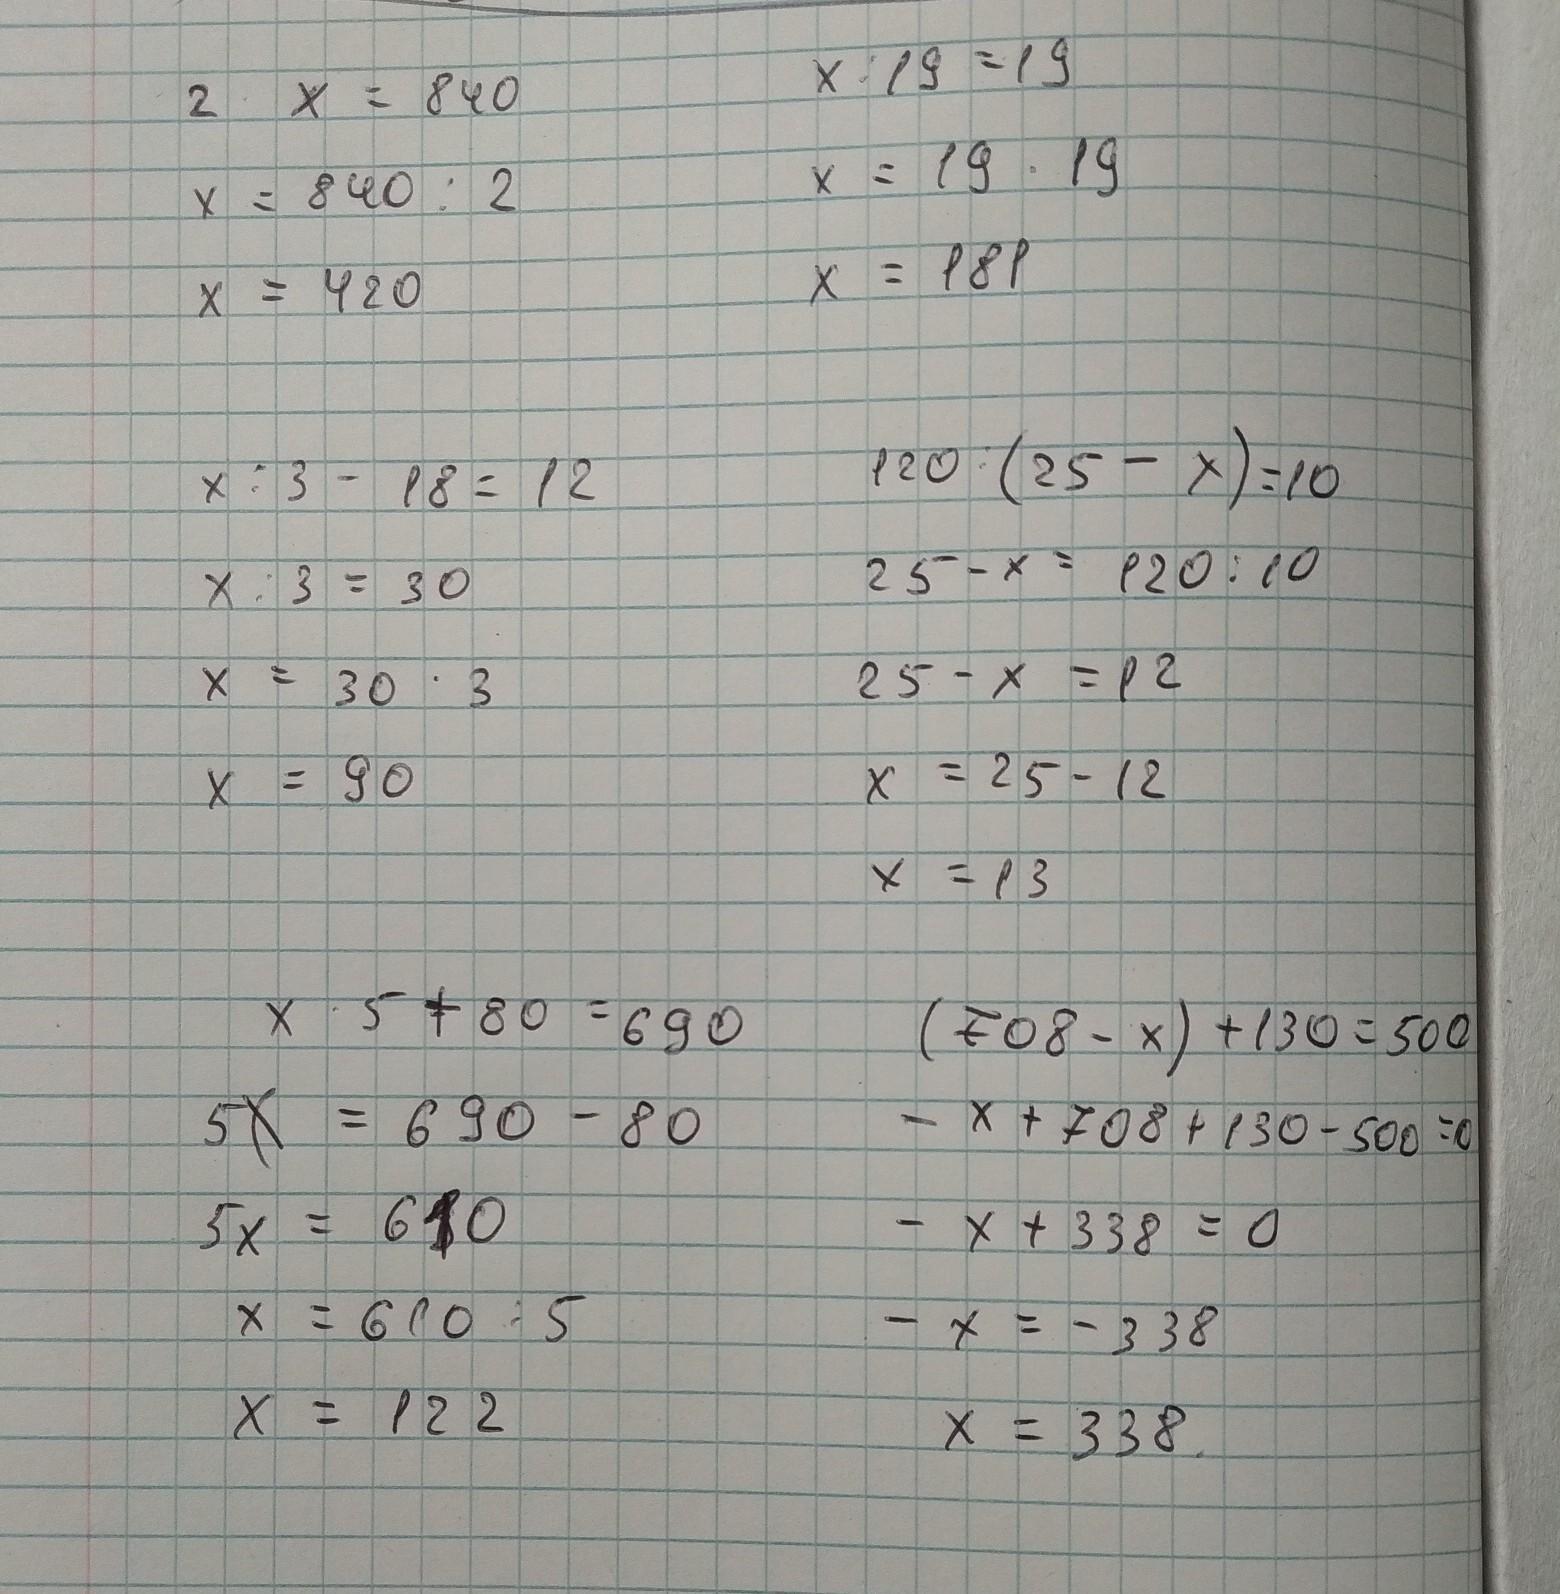 2 · x = 840
x = 840 : 2
x = 420
x : 19 = 19
x = 19 · 19
x = 181
x : 3 - 18 = 12
x : 3 = 30
x = 30 · 3
x = 90
120 : (25 - x) = 10
25 - x = 120 : 10
25 - x = 12
x = 25 - 12
x = 13
x · 5 + 80 = 690
5x = 690 - 80
5x = 610
x = 610 : 5
x = 122
(708 - x) + 130 = 500
- x + 708 + 130 - 500 = 0
- x + 338 = 0
- x = - 338
x = 338.